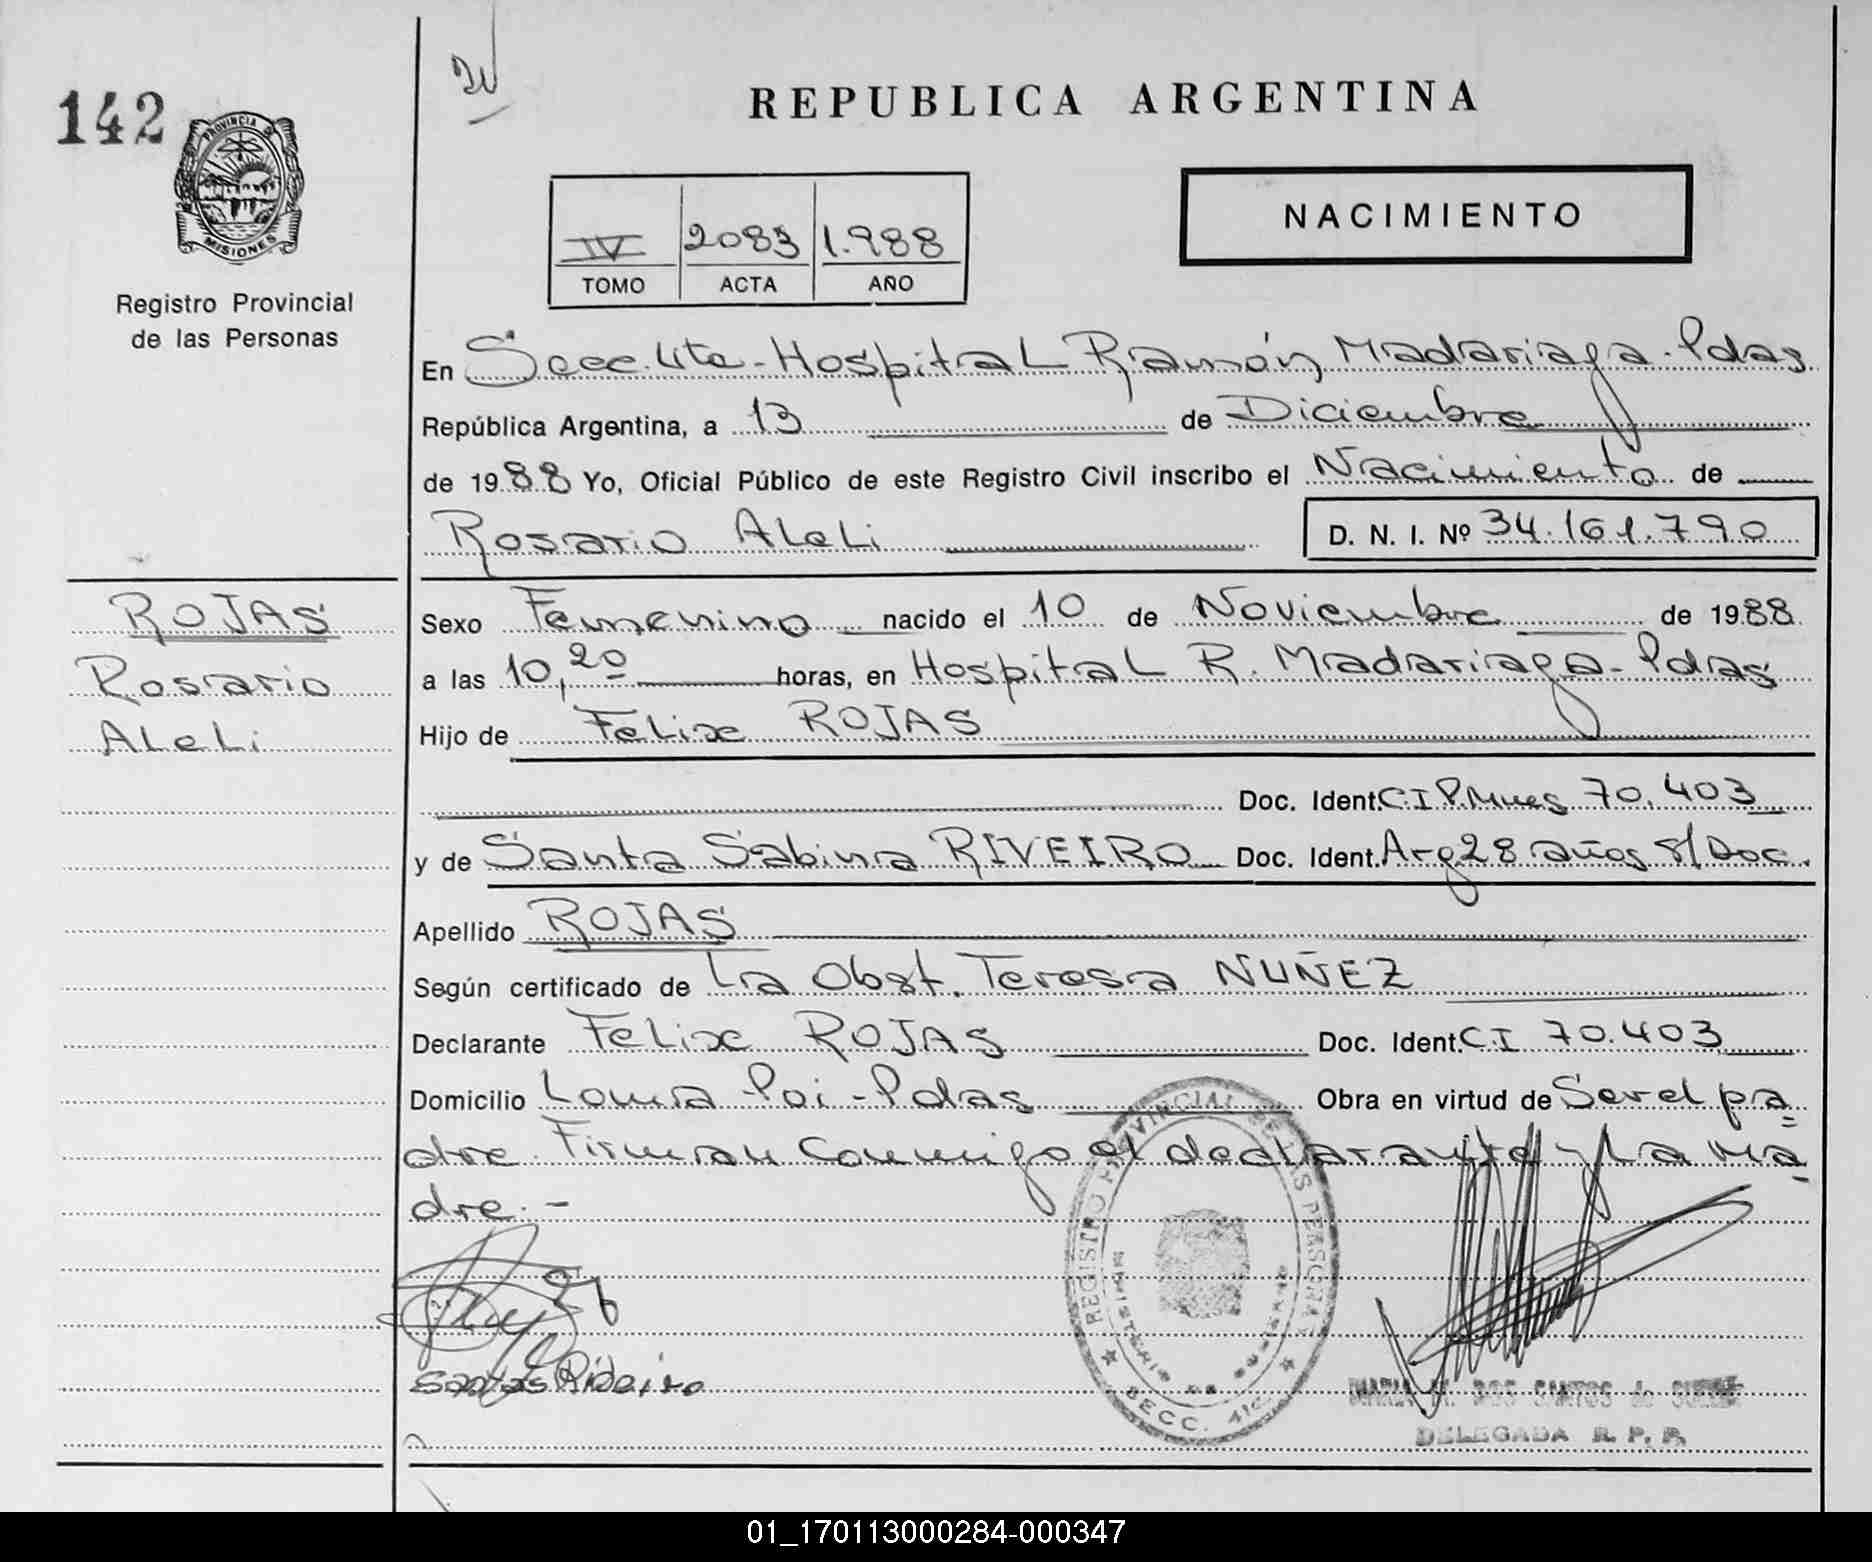 142
REPUBLICA ARGENTINA
PROVINCIA DE
MISIONES
Registro Provincial
de las Personas
NACIMIENTO
IV 2083 1.988
TOMO ACTA AÑO
En Secc. 4ta - Hospital Ramón Madariaga - Pdas
República Argentina, a 13 de Diciembre
de 1988 Yo, Oficial Público de este Registro Civil inscribo el Nacimiento de
Rosario Aleli D. N. I. Nº 34.161.790
ROJAS
Rosario
Aleli
Sexo Femenino nacido el 10 de Noviembre de 1988
a las 10,20 horas, en Hospital R. Madariaga - Pdas
Hijo de Felix ROJAS
Doc. Ident. C.I P.Mnes 70.403
y de Santa Sabina RIVEIRO Doc. Ident. Arg 28 años s/Doc.
Apellido ROJAS
Según certificado de La Obst. Teresa NUÑEZ
Declarante Felix ROJAS Doc. Ident. C.I 70.403
Domicilio Loma Poi - Pdas Obra en virtud de Ser el pa=
dre. Firman Conmigo el declarante y La ma-
dre. -
REGISTRO PROVINCIAL DE LAS PERSONAS
MINISTERIO DE GOBIERNO
SECC. 4ta
Santas Ribeiro
MARIA M. DOS SANTOS de
DELEGADA R. P. P.
01_170113000284-000347